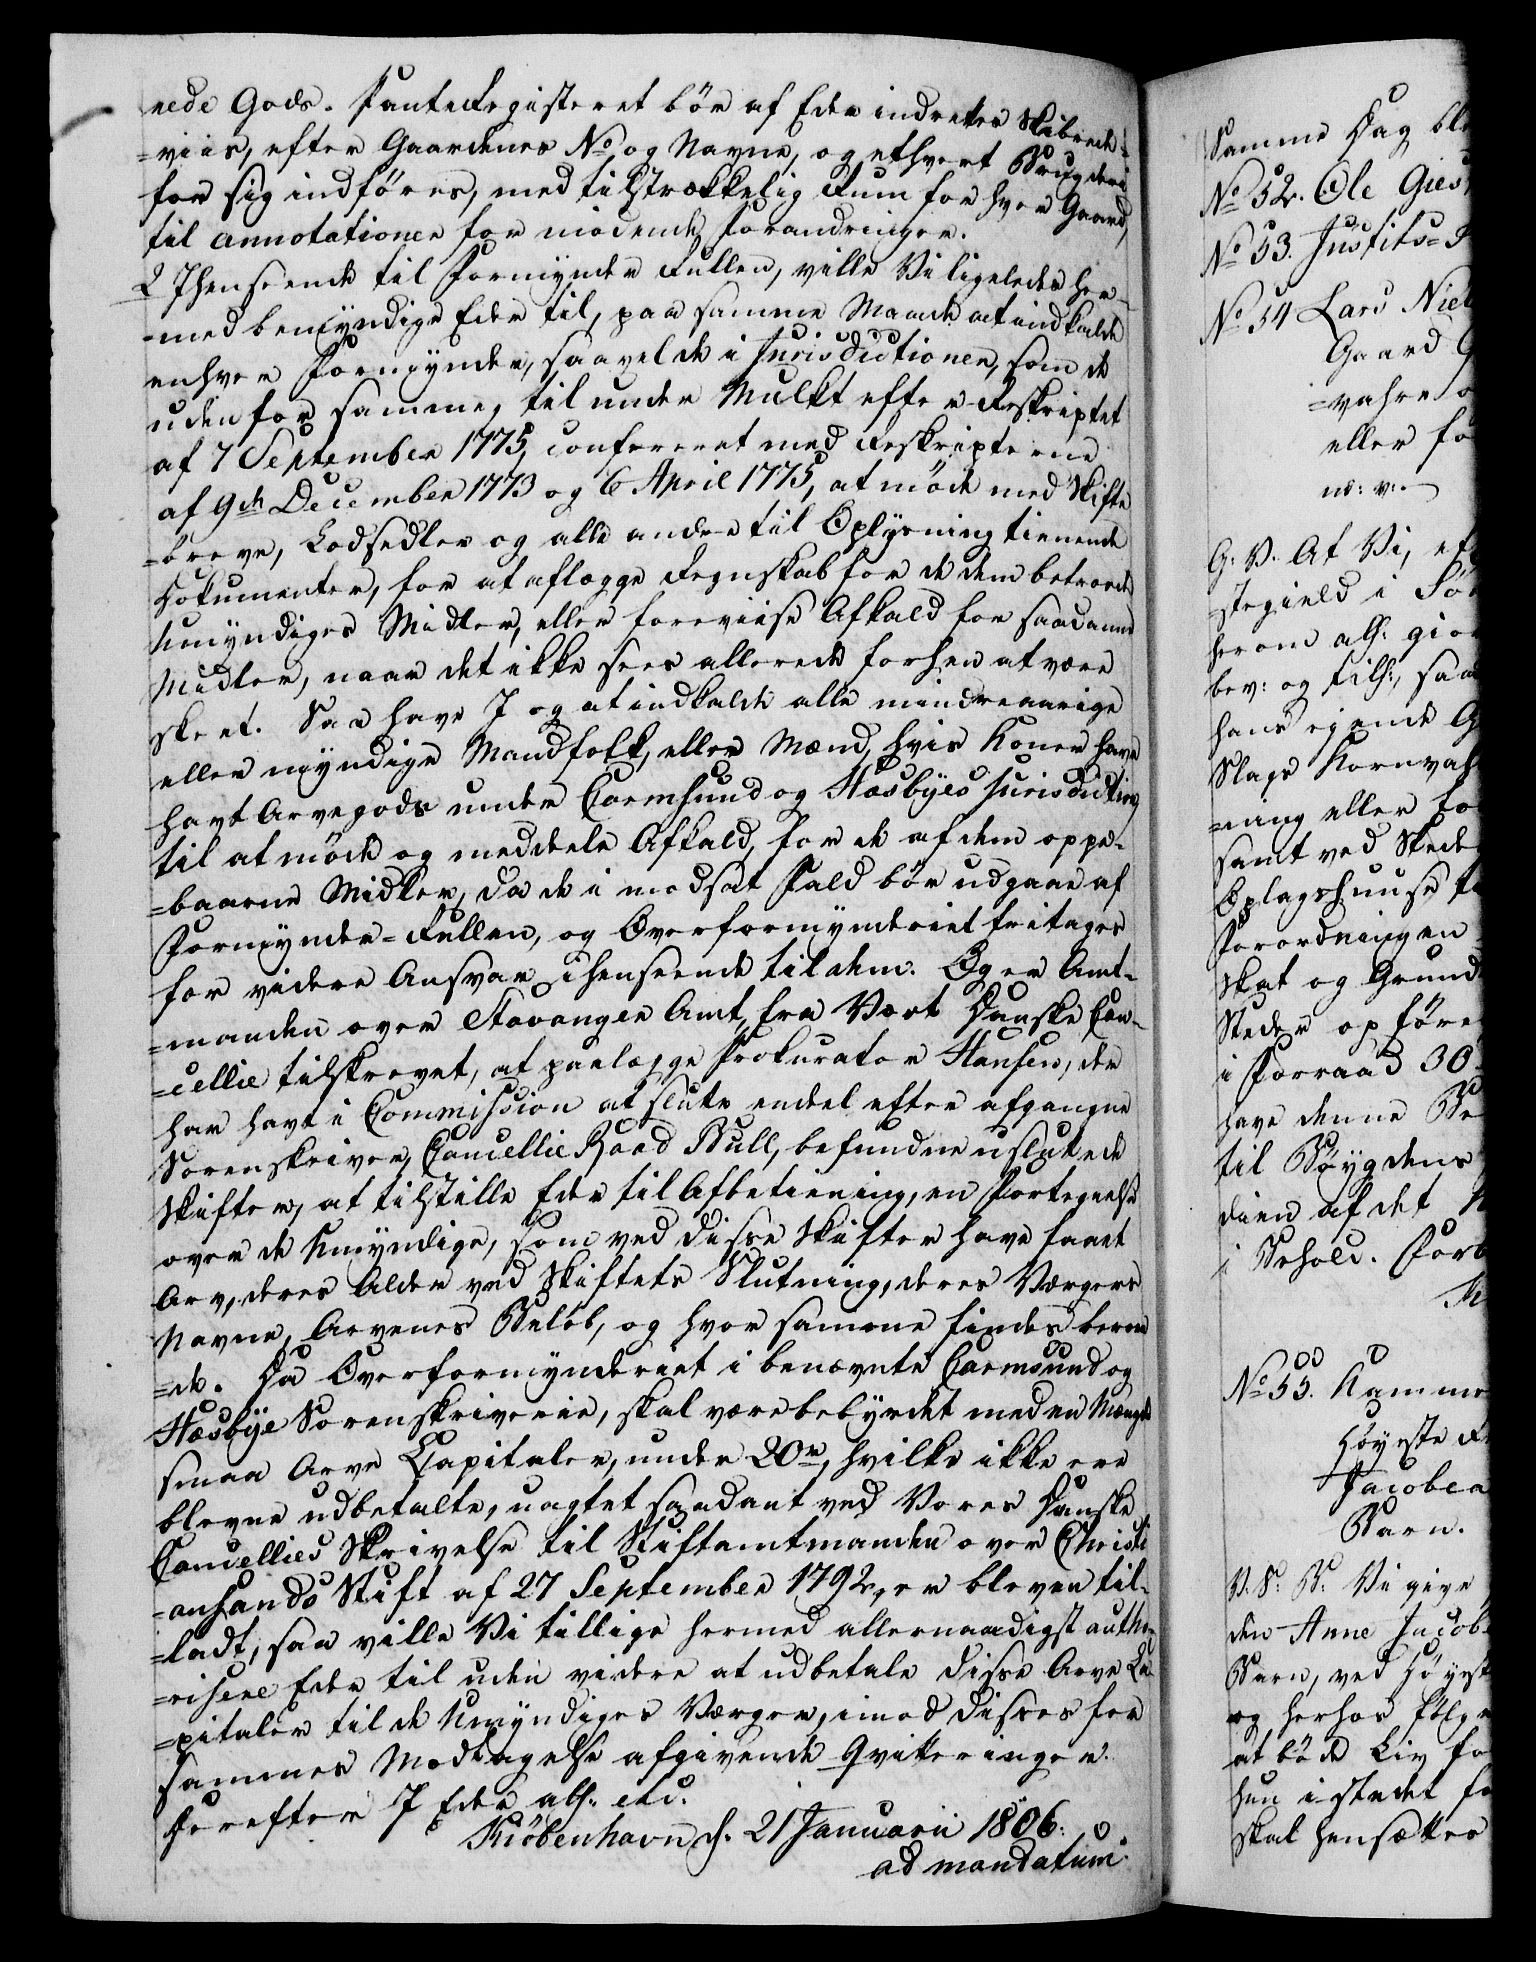 rede Gods. Panteregisteret bör af Eder indrettes Skibrede=
=viis, efter Gaardenes No og Navne, og ethvert Brug deri
for sig indføres, med tilstrækkelig Rum for hver Gaard,
til annotationer for mødende Forandringer.
2 I henseende til Formynder Rullen, ville Vi ligeledes her=
=med bemyndige Eder til, paa samme Maade at indkalde
enhver Formynder, saavel de i Jurisdictionen, som de
udenfor samme, til under Mulkt efter Reskriptet
af 7 September 1775, confereret med Reskripterne
af 9de December 1773 og 6 April 1775, at møde med Skifte
=breve, Lodsedler og alle andre til Oplysning tienende
Dokumenter, for at aflægge Regnskab for de dem betroede
Umyndiges Midler, eller foreviise Afkald for saadanne
Midler, naar det ikke sees allerede forhen at være
skeet. Saa have I og at indkalde alle mindreaarige
eller myndige Mandfolk, eller Mænd, hvis Koner have
havt Arvegods under Carmsund og Hæsbyes Jurisdiction,
til at møde og meddele Afkald, for de af dem oppe=
=baarne Midler, da de i modsat Fald bör udgaae af
Formynder=Rullen, og Overformynderiet fritages
for videre Ansvar i henseende til dem. Og er Amt=
=manden over Stavanger Amt, fra Vort Danske Can=
=cellie tilskrevet, at paalægge Prokurator Hansen, der
har havt i Commission at slutte endel efter afgangne
Sorenskriver, Cancellie Raad Bull, befundne usluttede
Skifter, at tilstille Eder til Afbetiening, en Fortegnelse
over de Umyndige, som ved disse Skifter have faaet
Arv, deres Alder ved Skiftets Slutning, deres Værgers
Navne, Arvenes Beløb, og hvor samme findes beroen
=de. Da Overformynderiet i benævnte Carmsund og
Hæsbye Sorenskriverie, skal være bebyrdet med en Mængde
smaa Arve Capitaler, under 20r, hvilke ikke ere
blevne udbetalte, uagtet saadant ved Vores Danske
Cancellies Skrivelse til Stiftamtmanden over Christi
=ansands Stift af 27 September 1792, er bleven til=
=ladt, saa ville Vi tillige hermed allernaadigst autho=
=risere Eder til uden videre at udbetale disse Arve Ca=
=pitaler til de Umyndiges Værger, imod disses for
sammes Modtagelse afgivende Qvitteringer.
Derefter I Eder alh: etc.
Kiøbenhavn d. 21 Januarii 1806.
ad mandatum.
Samme Dag ble
No 52. Ole Gies
No 53. Justits=
No 54 Lars Niel
Gaard
=vahre
eller fo
m: v:
G: V. At Vi, eft
stegield i Sø
herom alh: gior
bev: og tilh:, saa
hans egende G
Slags Kornvah
=ning eller fo
samt ved Stede
Oplagshuuse
Forordningen
Skat og Grund
Steder opføre
i Forraad 30
have denne Be
til Bøygdens
dien af det
i Behold. Forb
No 55. Kamme
Høyeste
Jacobea
Barn.
V. S: B: Vi give
den Anne Jacob
Barn, ved Høyest
og herhos følge
at bøde Liv fo
hun istedet fo
skal hensættes